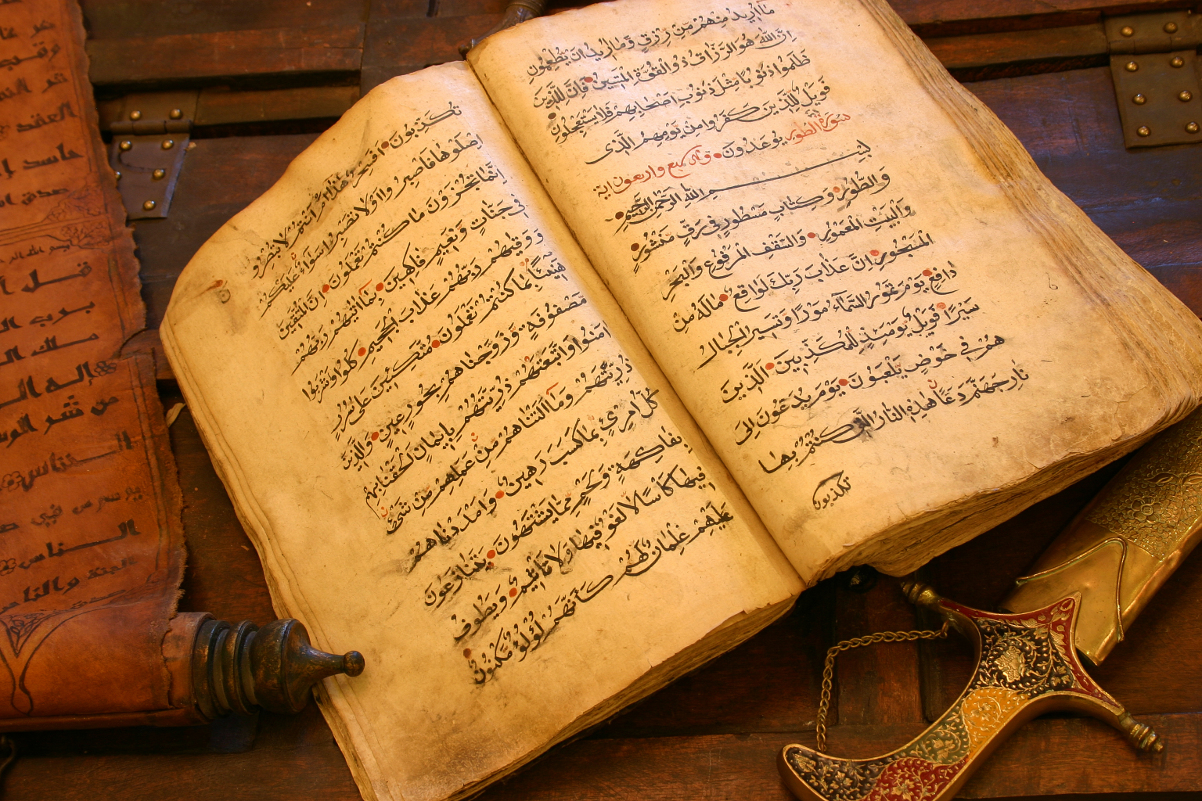 ما اريد منهم من رزق وما اريد ان يطعمون
ان الله هو الرزاق ذو القوة المتين فان للذين
ظلموا ذنوبا مثل ذنوب اصحابهم فلا يستعجلون
فويل للذين كفروا من يومهم الذي
يوعدون سورة الطور وهي سبع واربعون اية
بسم الله الرحمن الرحيم
والطور وكتاب مسطور في رق منشور
والبيت المعمور والسقف المرفوع والبحر
المسجور ان عذاب ربك لواقع ماله من
دافع يوم تمور السماء مورا وتسير الجبال
سيرا فويل يومئذ للمكذبين الذين
هم في خوض يلعبون يوم يدعون الى
نار جهنم دعا هذه النار التي كنتم بها
تكذبون
تكذبون افسحر هذا ام انتم لا تبصرون
اصلوها فاصبروا او لا تصبروا سواء عليكم
انما تجزون ما كنتم تعملون ان المتقين
في جنات ونعيم فاكهين بما اتيهم ربهم
ووقيهم ربهم عذاب الجحيم كلوا واشربوا
هنيئا بما كنتم تعملون متكئين على سرر
مصفوفة وزوجناهم بحور عين والذين
امنوا واتبعتهم ذريتهم بايمان الحقنا بهم
ذريتهم وما التناهم من عملهم من شئ
كل امرئ بما كسب رهين وامددناهم
بفاكهة ولحم مما يشتهون يتنازعون
فيها كأسا لا لغو فيها ولا تأثيم ويطوف
عليهم غلمان لهم كأنهم لؤلؤ مكنون
العقد
حاسد
قل
برب
ملك
إله
من شر
الناس
في
الناس